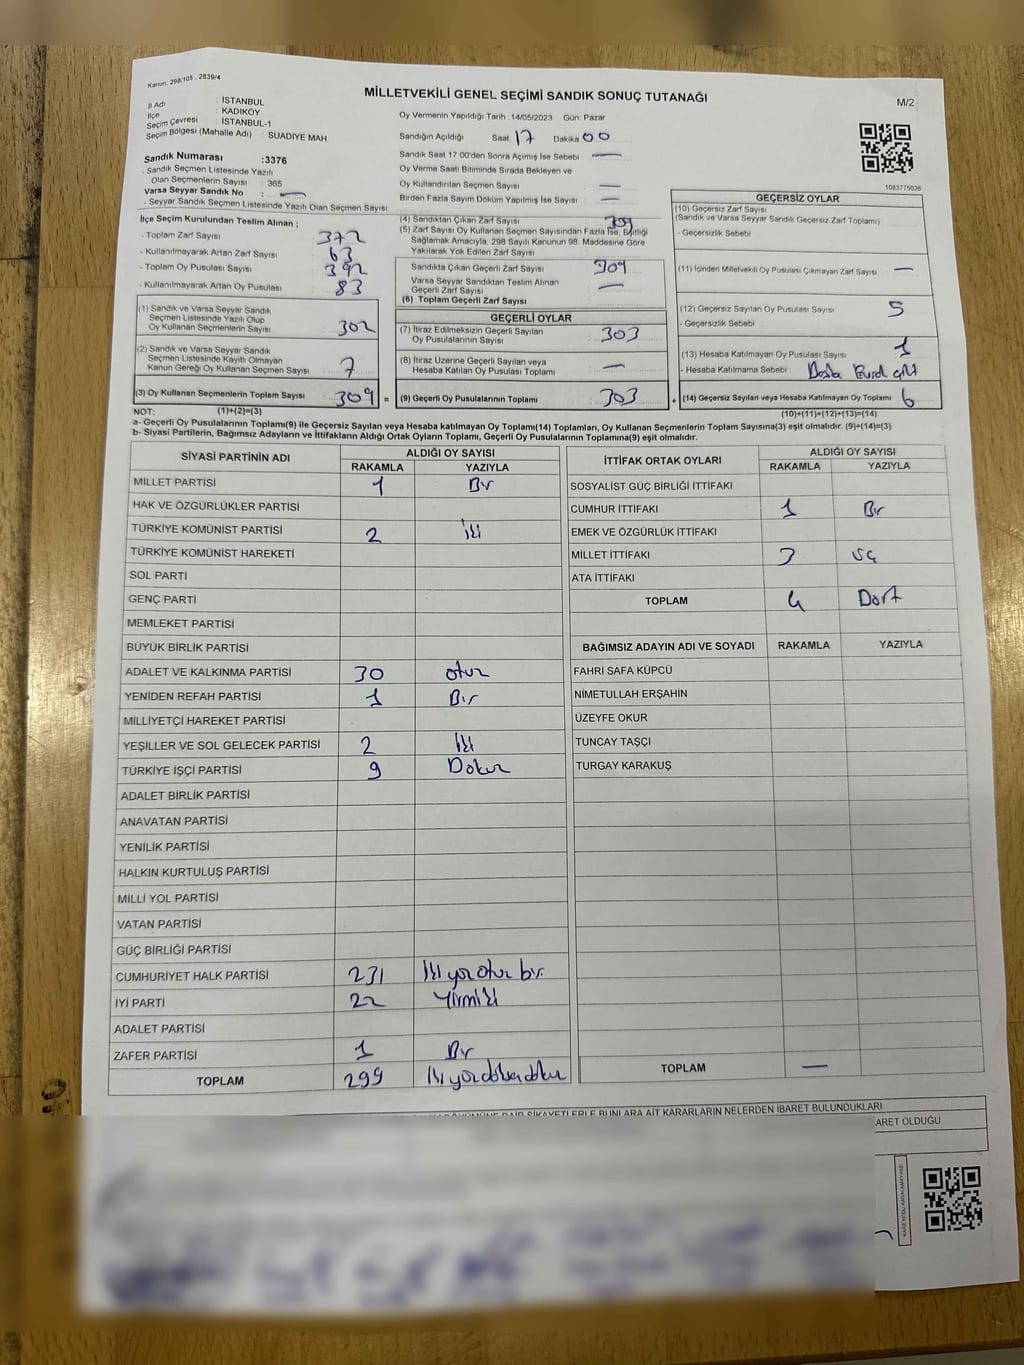 Kanun. 298/105 . 2839/4
MİLLETVEKİLİ GENEL SEÇİMİ SANDIK SONUÇ TUTANAĞI
M/2
İl Adı : İSTANBUL
İlçe : KADIKÖY
Seçim Çevresi : İSTANBUL-1
Seçim Bölgesi (Mahalle Adı) : SUADİYE MAH
Oy Vermenin Yapıldığı Tarih :14/05/2023 Gün: Pazar
Sandığın Açıldığı Saat 17 Dakika 00
Sandık Saat 17 00'den Sonra Açımış İse Sebebi : —
Oy Verme Saati Bitiminde Sırada Bekleyen ve
Oy Kullandırılan Seçmen Sayısı —
Birden Fazla Sayım Döküm Yapılmış İse Sayısı : —
Sandık Numarası :3376
- Sandık Seçmen Listesinde Yazılı
Olan Seçmenlerin Sayısı 365
Varsa Seyyar Sandık No : —
- Seyyar Sandık Seçmen Listesinde Yazılı Olan Seçmen Sayısı:
1083775026
İlçe Seçim Kurulundan Teslim Alınan ;
- Toplam Zarf Sayısı 372
- Kullanılmayarak Artan Zarf Sayısı : 63
- Toplam Oy Pusulası Sayısı 392
- Kullanılmayarak Artan Oy Pusulası : 83
(1) Sandık ve Varsa Seyyar Sandık
Seçmen Listesinde Yazılı Olup
Oy Kullanan Seçmenlerin Sayısı : 302
(2) Sandık ve Varsa Seyyar Sandık
Seçmen Listesinde Kayıtlı Olmayan
Kanun Gereği Oy Kullanan Seçmen Sayısı : 7
(3) Oy Kullanan Seçmenlerin Toplam Sayısı : 309 =
(4) Sandıktan Çıkan Zarf Sayısı 309
(5) Zarf Sayısı Oy Kullanan Seçmen Sayısından Fazla İse, Eşitliği
Sağlamak Amacıyla, 298 Sayılı Kanunun 98. Maddesine Göre
Yakılarak Yok Edilen Zarf Sayısı
Sandıkta Çıkan Geçerli Zarf Sayısı 309
Varsa Seyyar Sandıktan Teslim Alınan
Geçerli Zarf Sayısı : —
(6) Toplam Geçerli Zarf Sayısı
GEÇERLİ OYLAR
(7) İtiraz Edilmeksizin Geçerli Sayılan
Oy Pusulalarının Sayısı: 303
(8) İtiraz Üzerine Geçerli Sayılan veya
Hesaba Katılan Oy Pusulası Toplamı : —
(9) Geçerli Oy Pusulalarının Toplamı : 303 +
GEÇERSİZ OYLAR
(10) Geçersiz Zarf Sayısı
(Sandık ve Varsa Seyyar Sandık Geçersiz Zarf Toplamı)
- Geçersizlik Sebebi :
(11) İçinden Milletvekili Oy Pusulası Çıkmayan Zarf Sayısı : —
(12) Geçersiz Sayılan Oy Pusulası Sayısı : 5
- Geçersizlik Sebebi :
(13) Hesaba Katılmayan Oy Pusulası Sayısı 1
- Hesaba Katılmama Sebebi :
(14) Geçersiz Sayılan veya Hesaba Katılmayan Oy Toplamı : 6
NOT: (1)+(2)=(3) (10)+(11)+(12)+(13)=(14)
a- Geçerli Oy Pusulalarının Toplamı(9) ile Geçersiz Sayılan veya Hesaba katılmayan Oy Toplamı(14) Toplamları, Oy Kullanan Seçmenlerin Toplam Sayısına(3) eşit olmalıdır. (9)+(14)=(3)
b- Siyasi Partilerin, Bağımsız Adayların ve İttifakların Aldığı Ortak Oyların Toplamı, Geçerli Oy Pusulalarının Toplamına(9) eşit olmalıdır.
SİYASİ PARTİNİN ADI ALDIĞI OY SAYISI
RAKAMLA YAZIYLA
MİLLET PARTİSİ 1 Bir
HAK VE ÖZGÜRLÜKLER PARTİSİ
TÜRKİYE KOMÜNİST PARTİSİ 2 iki
TÜRKİYE KOMÜNİST HAREKETİ
SOL PARTİ
GENÇ PARTİ
MEMLEKET PARTİSİ
BÜYÜK BİRLİK PARTİSİ
ADALET VE KALKINMA PARTİSİ 30 otuz
YENİDEN REFAH PARTİSİ 1 Bir
MİLLİYETÇİ HAREKET PARTİSİ
YEŞİLLER VE SOL GELECEK PARTİSİ 2 iki
TÜRKİYE İŞÇİ PARTİSİ 9 Dokuz
ADALET BİRLİK PARTİSİ
ANAVATAN PARTİSİ
YENİLİK PARTİSİ
HALKIN KURTULUŞ PARTİSİ
MİLLİ YOL PARTİSİ
VATAN PARTİSİ
GÜÇ BİRLİĞİ PARTİSİ
CUMHURİYET HALK PARTİSİ 231 iki yüz otuz bir
İYİ PARTİ 22 Yirmi iki
ADALET PARTİSİ
ZAFER PARTİSİ 1 Bir
TOPLAM 299 iki yüz doksan dokuz
İTTİFAK ORTAK OYLARI ALDIĞI OY SAYISI
RAKAMLA YAZIYLA
SOSYALİST GÜÇ BİRLİĞİ İTTİFAKI
CUMHUR İTTİFAKI 1 Bir
EMEK VE ÖZGÜRLÜK İTTİFAKI
MİLLET İTTİFAKI 3 üç
ATA İTTİFAKI
TOPLAM 4 Dört
BAĞIMSIZ ADAYIN ADI VE SOYADI RAKAMLA YAZIYLA
FAHRİ SAFA KÜPCÜ
NİMETULLAH ERŞAHİN
ÜZEYFE OKUR
TUNCAY TAŞÇI
TURGAY KARAKUŞ
TOPLAM —
ŞİKAYETLERLE BUNLARA AİT KARARLARIN NELERDEN İBARET BULUNDUKLARI
ARET OLDUĞU